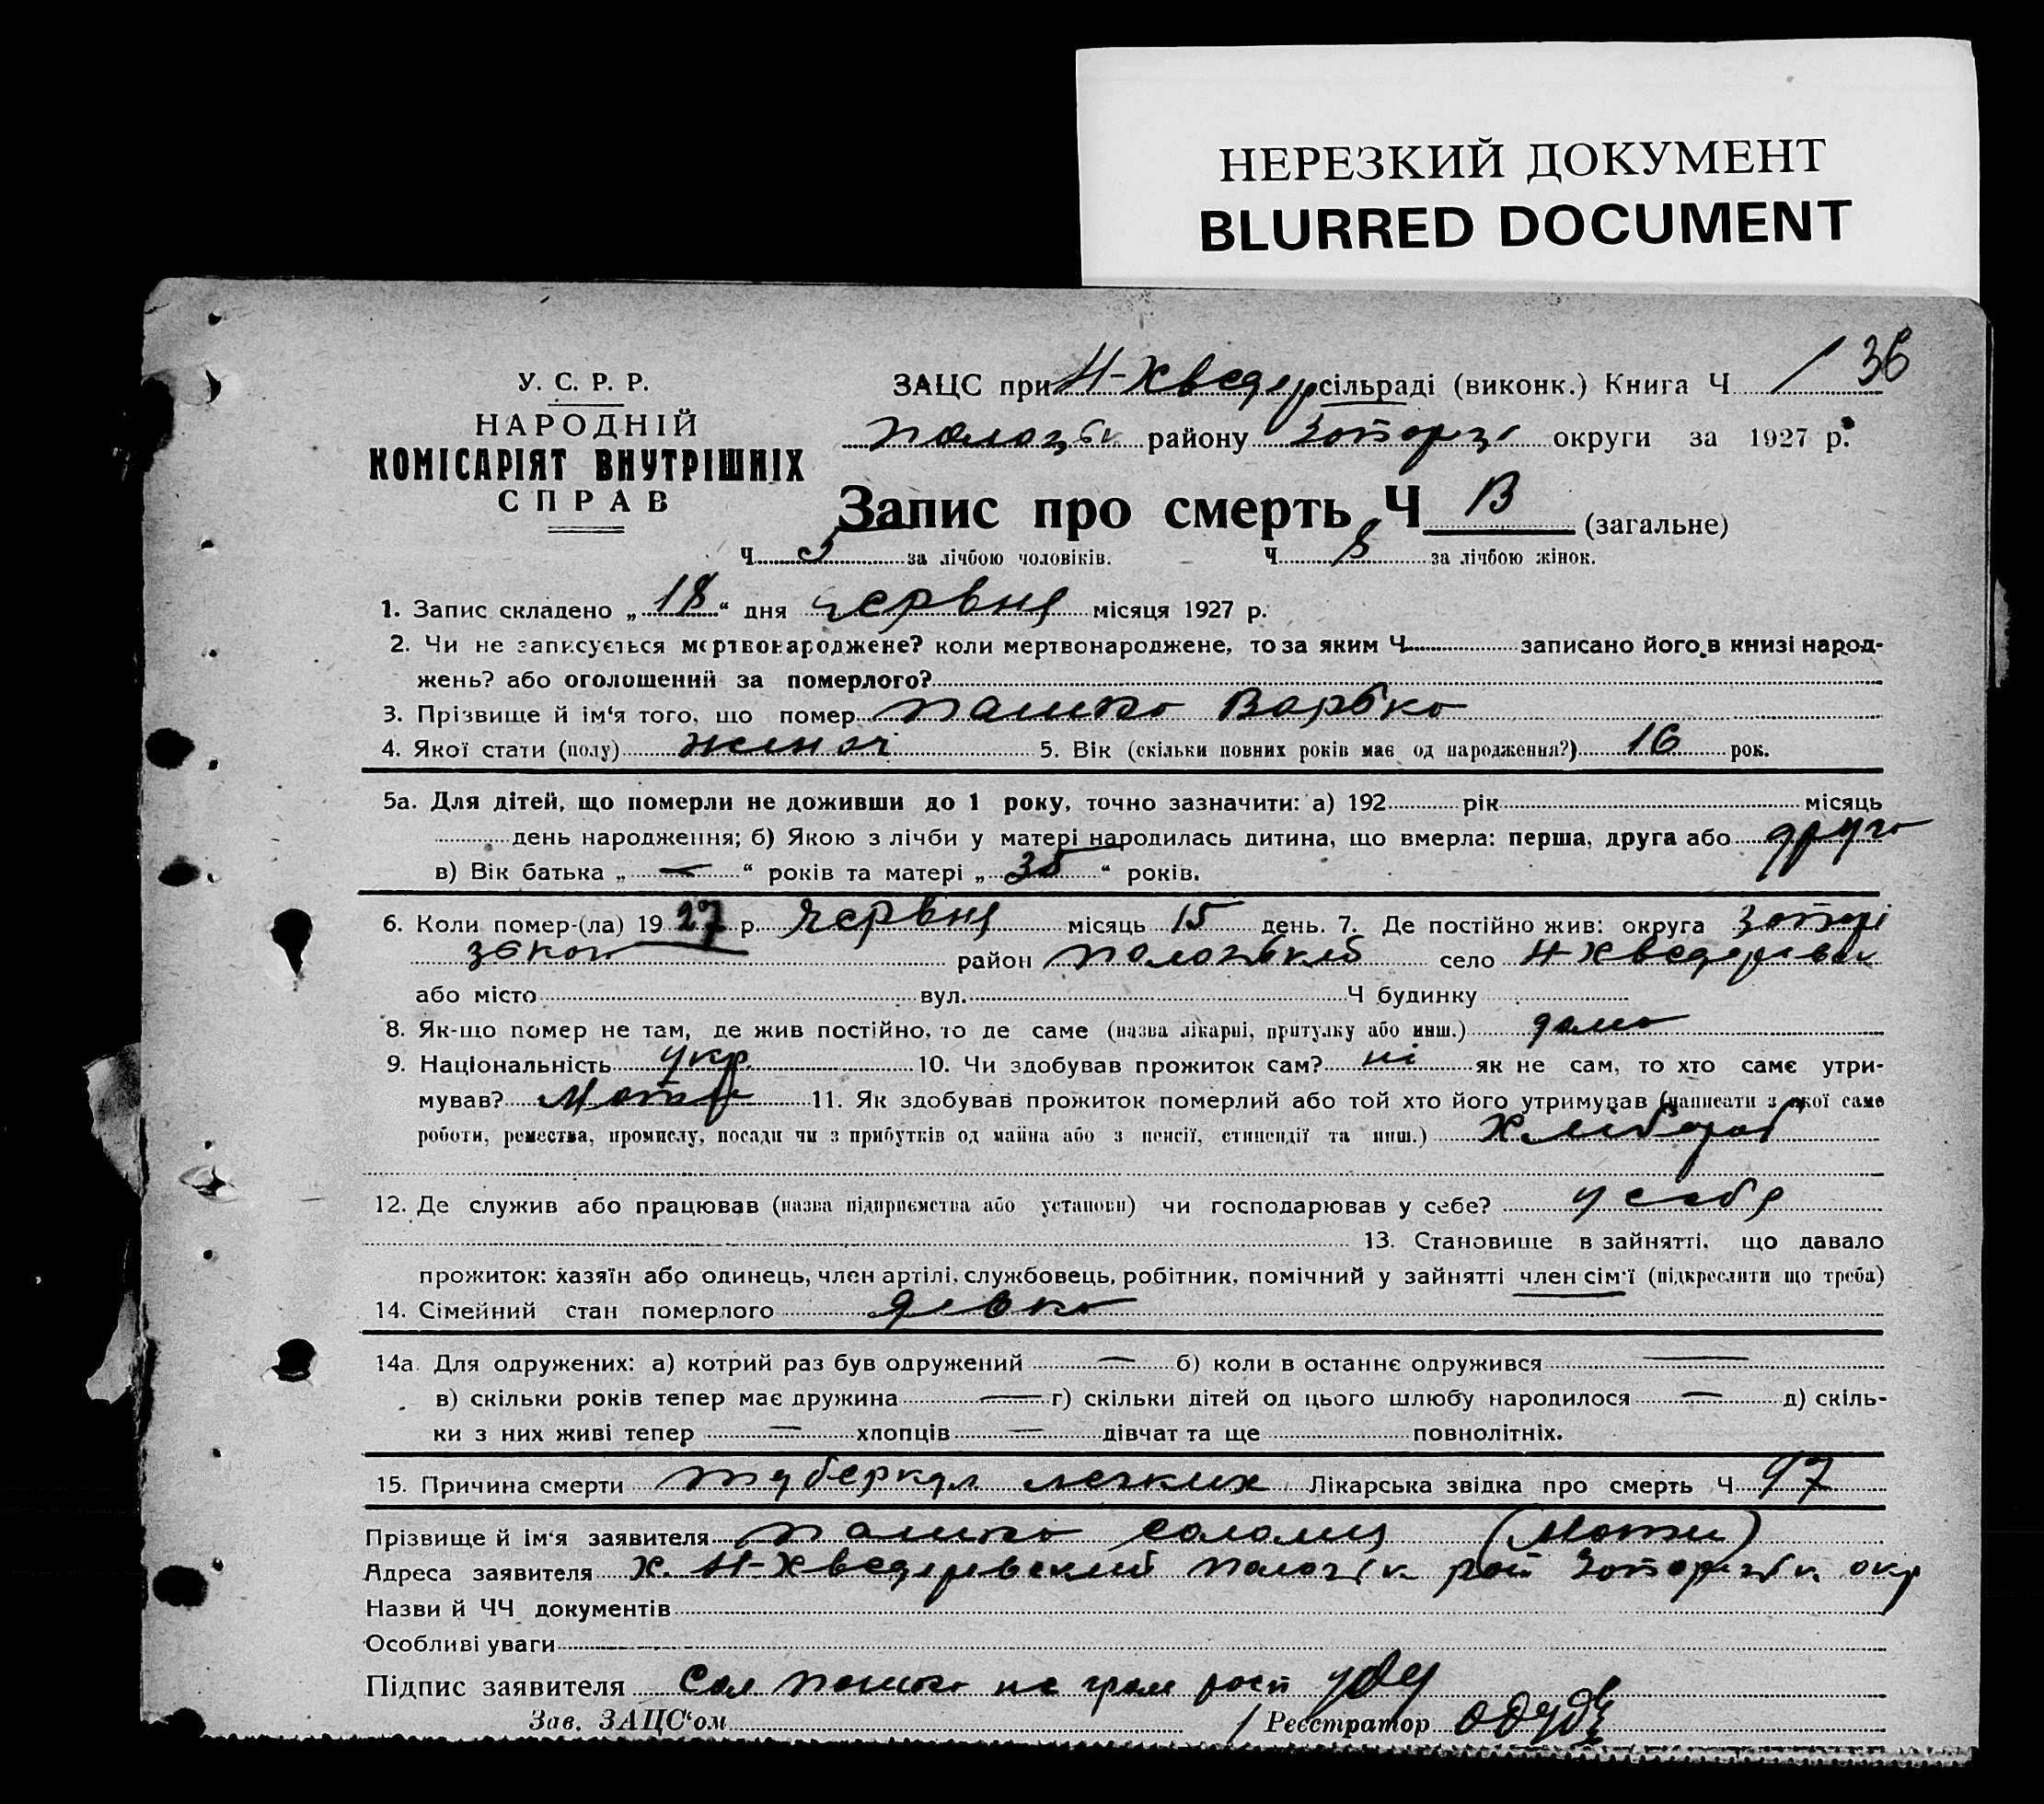 НЕРЕЗКИЙ ДОКУМЕНТ
BLURRED DOCUMENT
У. С. Р. Р.
НАРОДНІЙ
КОМІСАРІЯТ ВНУТРІШНІХ
СПРАВ
ЗАЦС при Н-Хведер сільраді (виконк.) Книга Ч 1 36
району округи за 1927 р.
Запис про смерть Ч (загальне)
Ч 5 за лічбою чоловіків. Ч 8 за лічбою жінок.
1. Запис складено „18“ дня червня місяця 1927 р.
2. Чи не записується мертвонароджене? коли мертвонароджене, то за яким Ч записано його в книзі народ-
жень? або оголошений за померлого?
3. Прізвище й ім'я того, що помер Пашко Варвко
4. Якої стати (полу) жіноч 5. Вік (скільки повних років має од народження?) 16 рок.
5а. Для дітей, що померли не доживши до 1 року, точно зазначити: а) 192 рік місяць
день народження; б) Якою з лічби у матері народилась дитина, що вмерла: перша, друга або друго
в) Вік батька „ — “ років та матері „ 35 “ років.
6. Коли помер-(ла) 1927 р. червня місяць 15 день. 7. Де постійно жив: округа Запорі
зької район Пологівский село Н-Хведерівки
або місто вул. Ч будинку
8. Як-що помер не там, де жив постійно, то де саме (назва лікарні, притулку або инш.) дома
9. Національність укр. 10. Чи здобував прожиток сам? ні як не сам, то хто саме утри-
мував? Матір 11. Як здобував прожиток померлий або той хто його утримував (написати з якої саме
роботи, ремества, промислу, посади чи з прибутків од майна або з пенсії, стипендії та инш.) Хлібороб
12. Де служив або працював (назва підприємства або установи) чи господарював у себе? у себе
13. Становище в зайнятті, що давало
прожиток: хазяїн або одинець, член артілі, службовець, робітник, помічний у зайнятті член сім'ї (підкреслити що треба)
14. Сімейний стан померлого дівка
14а. Для одружених: а) котрий раз був одружений — б) коли в останнє одружився —
в) скільки років тепер має дружина — г) скільки дітей од цього шлюбу народилося — д) скіль-
ки з них живі тепер — хлопців — дівчат та ще повнолітніх.
15. Причина смерти туберкул легких Лікарська звідка про смерть Ч 97
Прізвище й ім'я заявителя Пашко Соломія (Мати)
Адреса заявителя х. Н-Хведерівский Пологівк рай Запоріжк окр
Назви й ЧЧ документів
Особливі уваги
Підпис заявителя Сол Пашко не грам росп
Зав. ЗАЦС'ом / Реєстратор